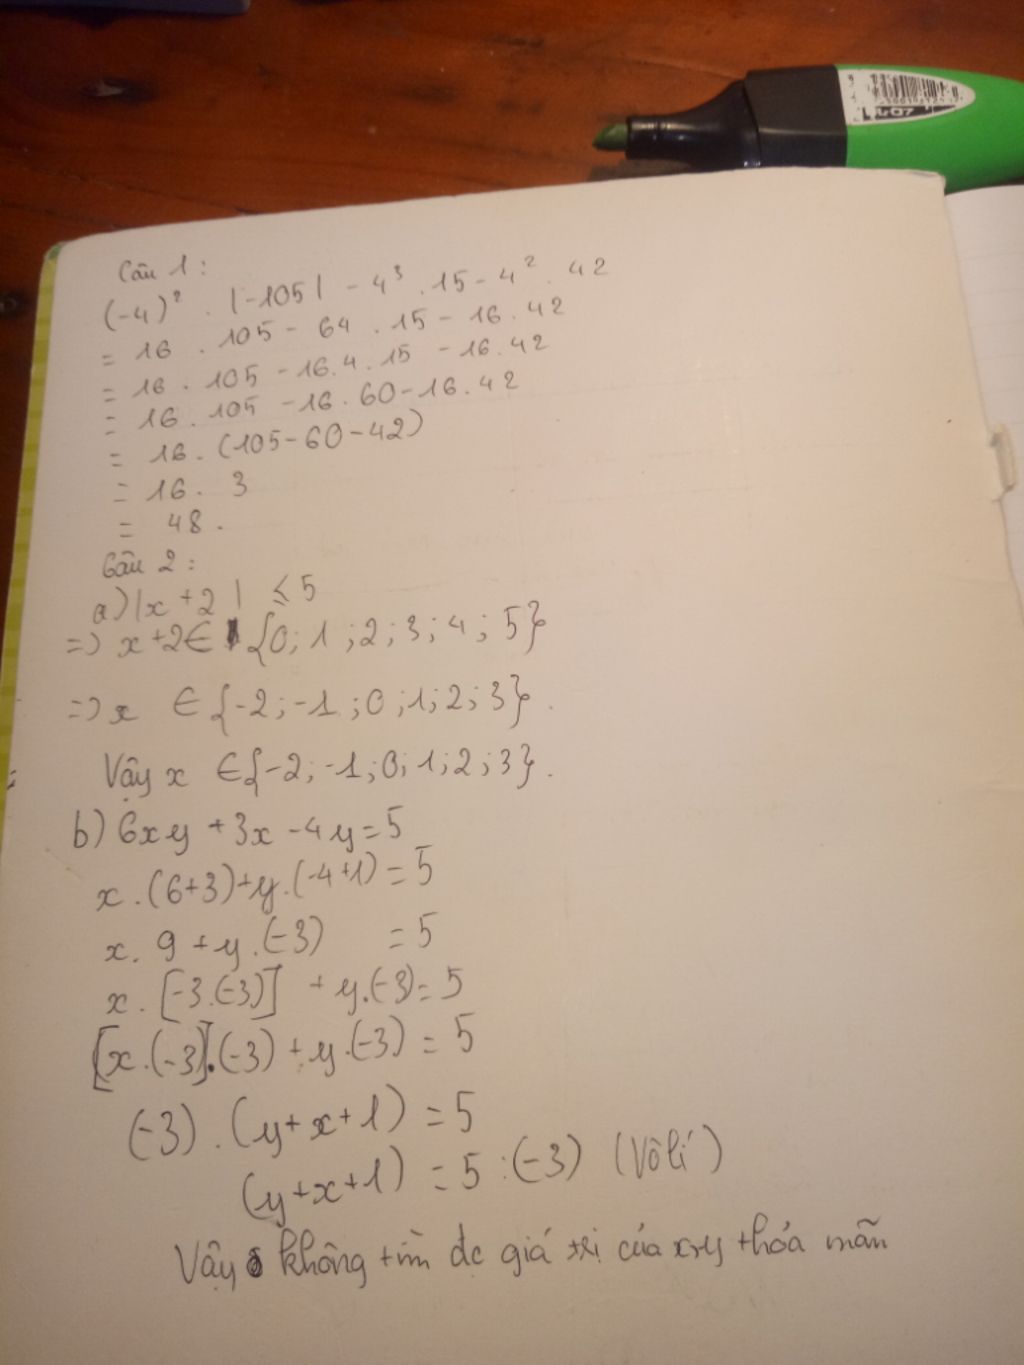 Câu 1:
(-4)² . |-105| - 4³ . 15 - 4² . 42
= 16 . 105 - 64 . 15 - 16 . 42
= 16 . 105 - 16 . 4 . 15 - 16 . 42
= 16 . 105 - 16 . 60 - 16 . 42
= 16 . (105 - 60 - 42)
= 16 . 3
= 48 .
Câu 2:
a) |x + 2| ≤ 5
=> x + 2 ∈ {0; 1; 2; 3; 4; 5}
=> x ∈ {-2; -1; 0; 1; 2; 3} .
Vậy x ∈ {-2; -1; 0; 1; 2; 3} .
b) 6xy + 3x - 4y = 5
x . (6+3) + y . (-4+1) = 5
x . 9 + y . (-3) = 5
x . [-3 . (-3)] + y . (-3) = 5
[x . (-3)] . (-3) + y . (-3) = 5
(-3) . (y + x + 1) = 5
(y + x + 1) = 5 : (-3) (Vô lí)
Vậy không tìm đc giá trị của x,y thỏa mãn